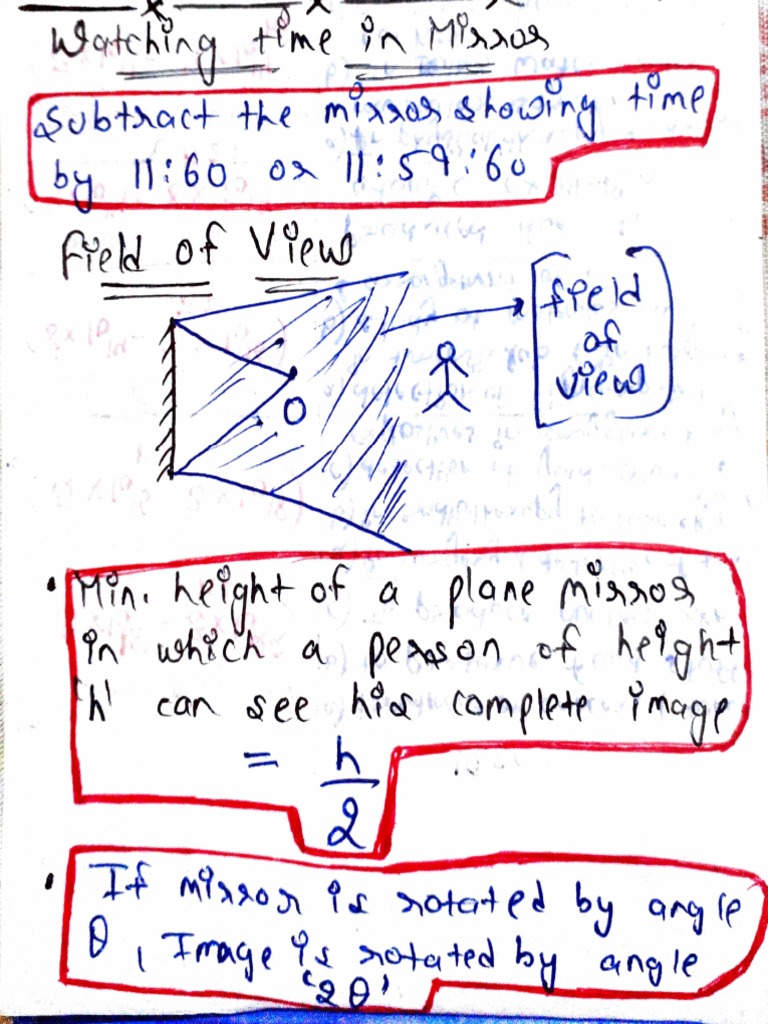 Watching time in Mirror
Subtract the mirror showing time
by 11:60 or 11:59:60
Field of View
field
of
view
O
• Min. height of a plane mirror
in which a person of height
'h' can see his complete image
= h/2
• If mirror is rotated by angle
θ, Image is rotated by angle
'2θ'